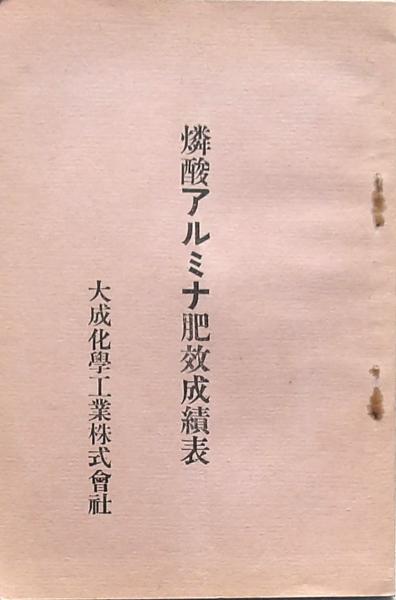 燐酸アルミナ肥效成績表
大成化學工業株式會社